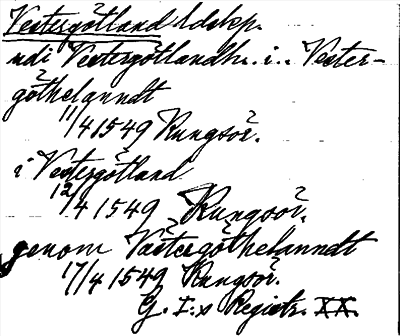 Vestergötland ldskp.
udi Vestergötlandh. i.. Vester-
göthelanndt
11/4 1549 Kungsör.
i Vestergötland
12/4 1549 Kungsör.
genom Västergöthelanndt
17/4 1549 Kungsör.
G. I:s Registr. XX.